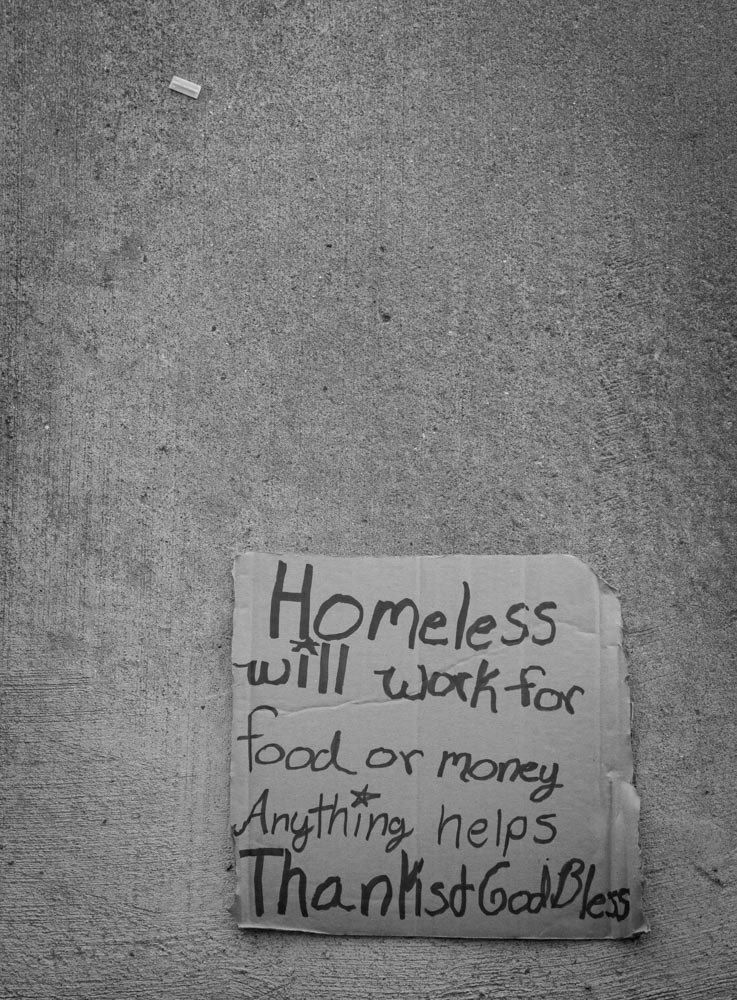 Homeless
will work for
food or money
Anything helps
Thanks & God Bless